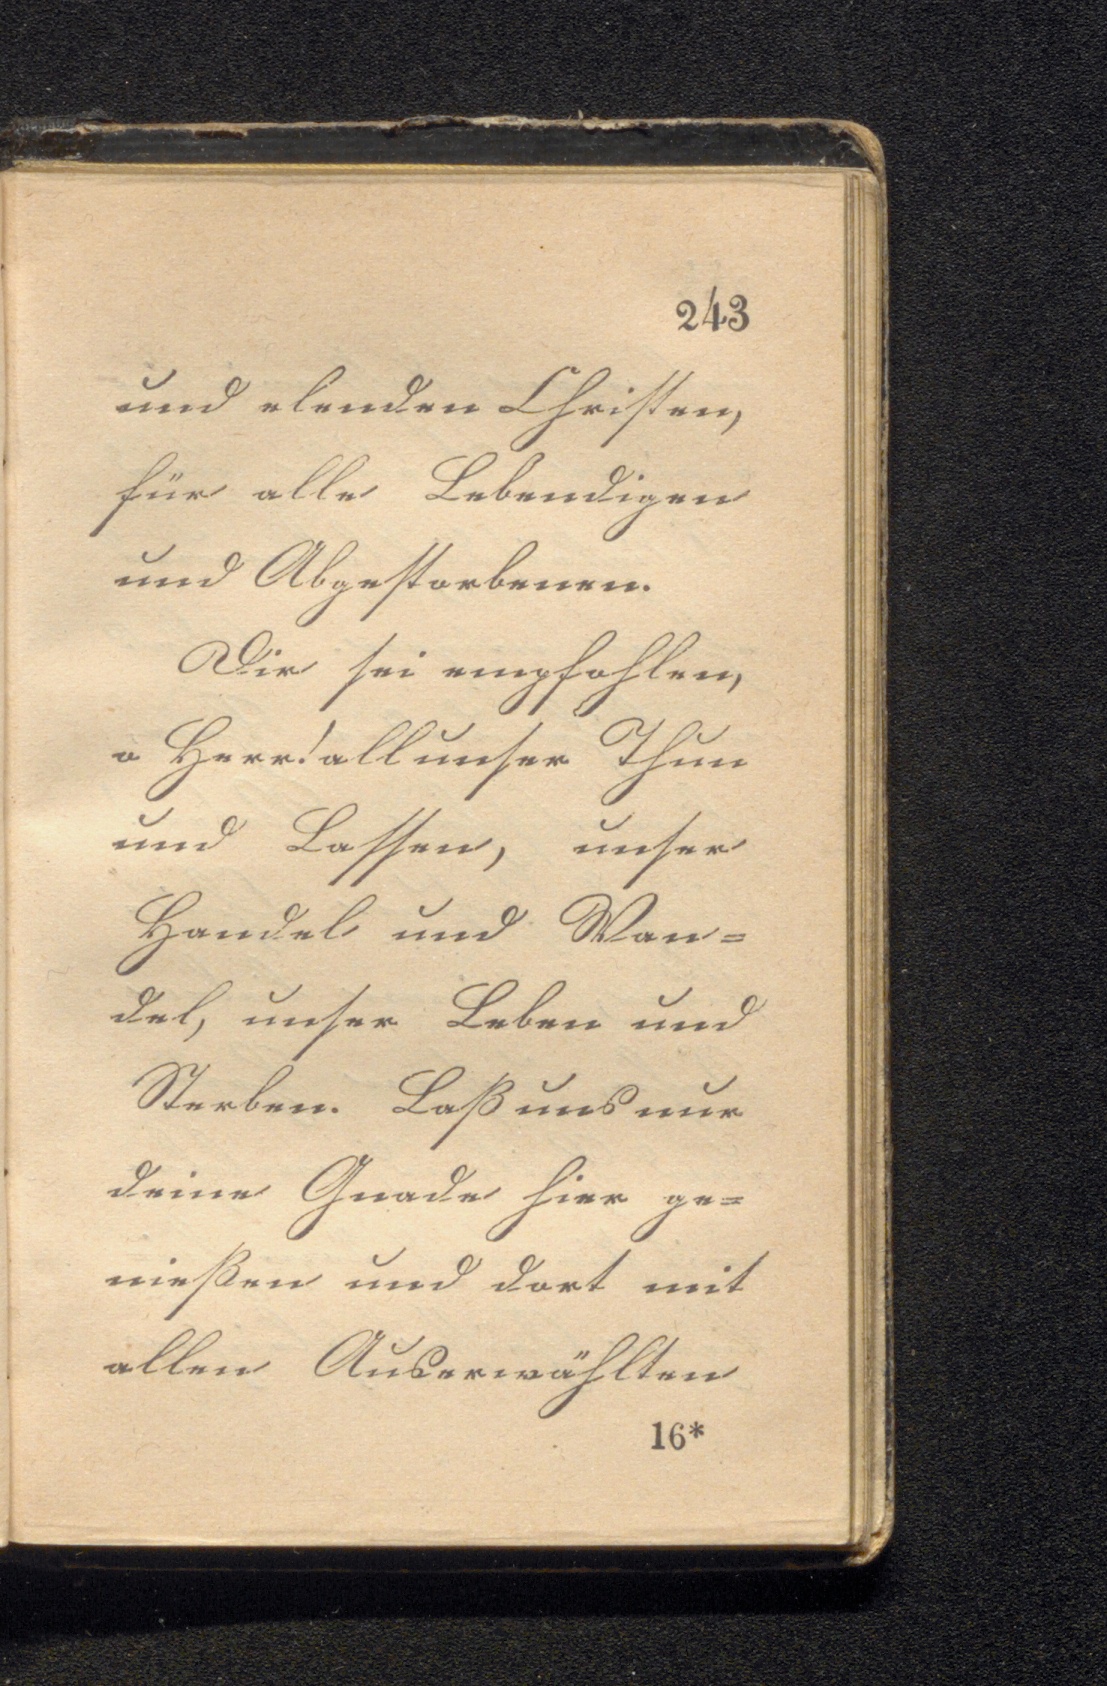 243
und elenden Christen,
für alle Lebendigen
und Abgestorbenen.
Dir sei empfohlen,
o Herr! all unser Thun
und Lassen, unser
Handel und Wan=
del, unser Leben und
Sterben. Laß uns nur
deine Gnade hier ge=
nießen und dort mit
allen Auserwählten
16*